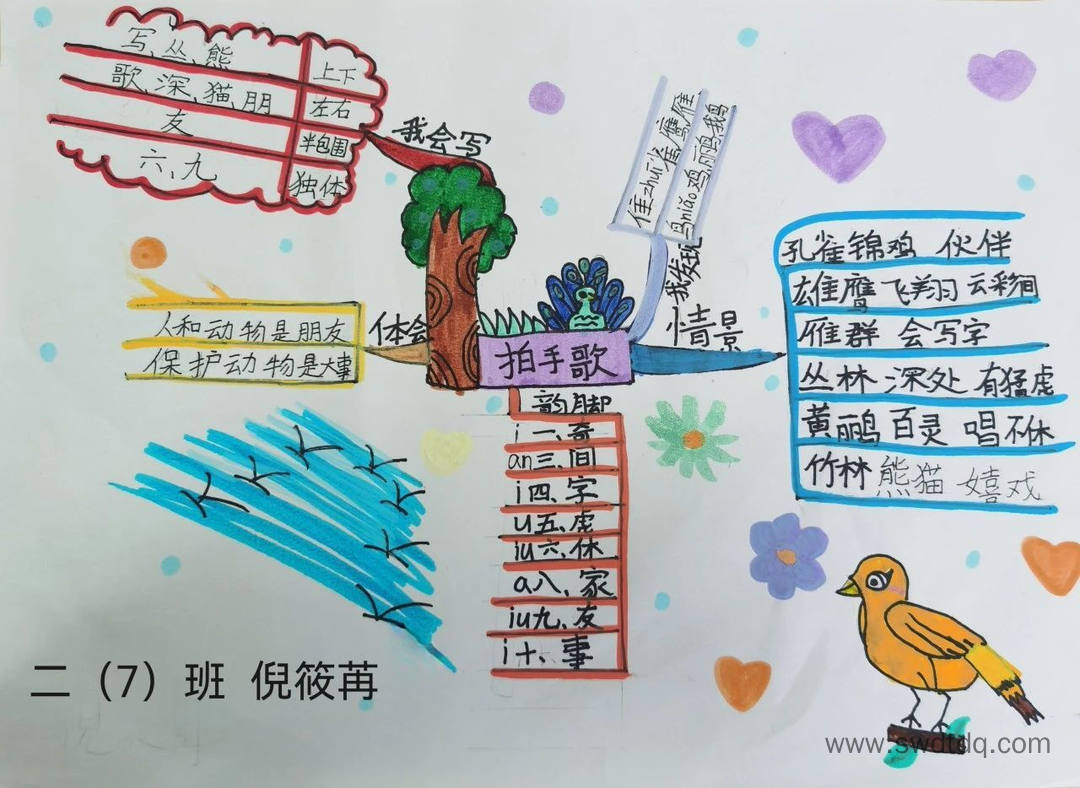 我会写
写、丛、熊 上下
歌、深、猫、朋 左右
友 半包围
六、九 独体
我发现
隹zhuī雀、鹰、雁
鸟niǎo鸡、鹂、鹅
体会
人和动物是朋友
保护动物是大事
拍手歌
情景
孔雀锦鸡 伙伴
雄鹰飞翔云彩间
雁群 会写字
丛林 深处 有猛虎
黄鹂百灵 唱不休
竹林 熊猫 嬉戏
韵脚
i 一、奇
an三、间
i四、字
u五、虎
iu六、休
a八、家
iu九、友
i十、事
二（7）班 倪筱苒
www.swdtdq.com